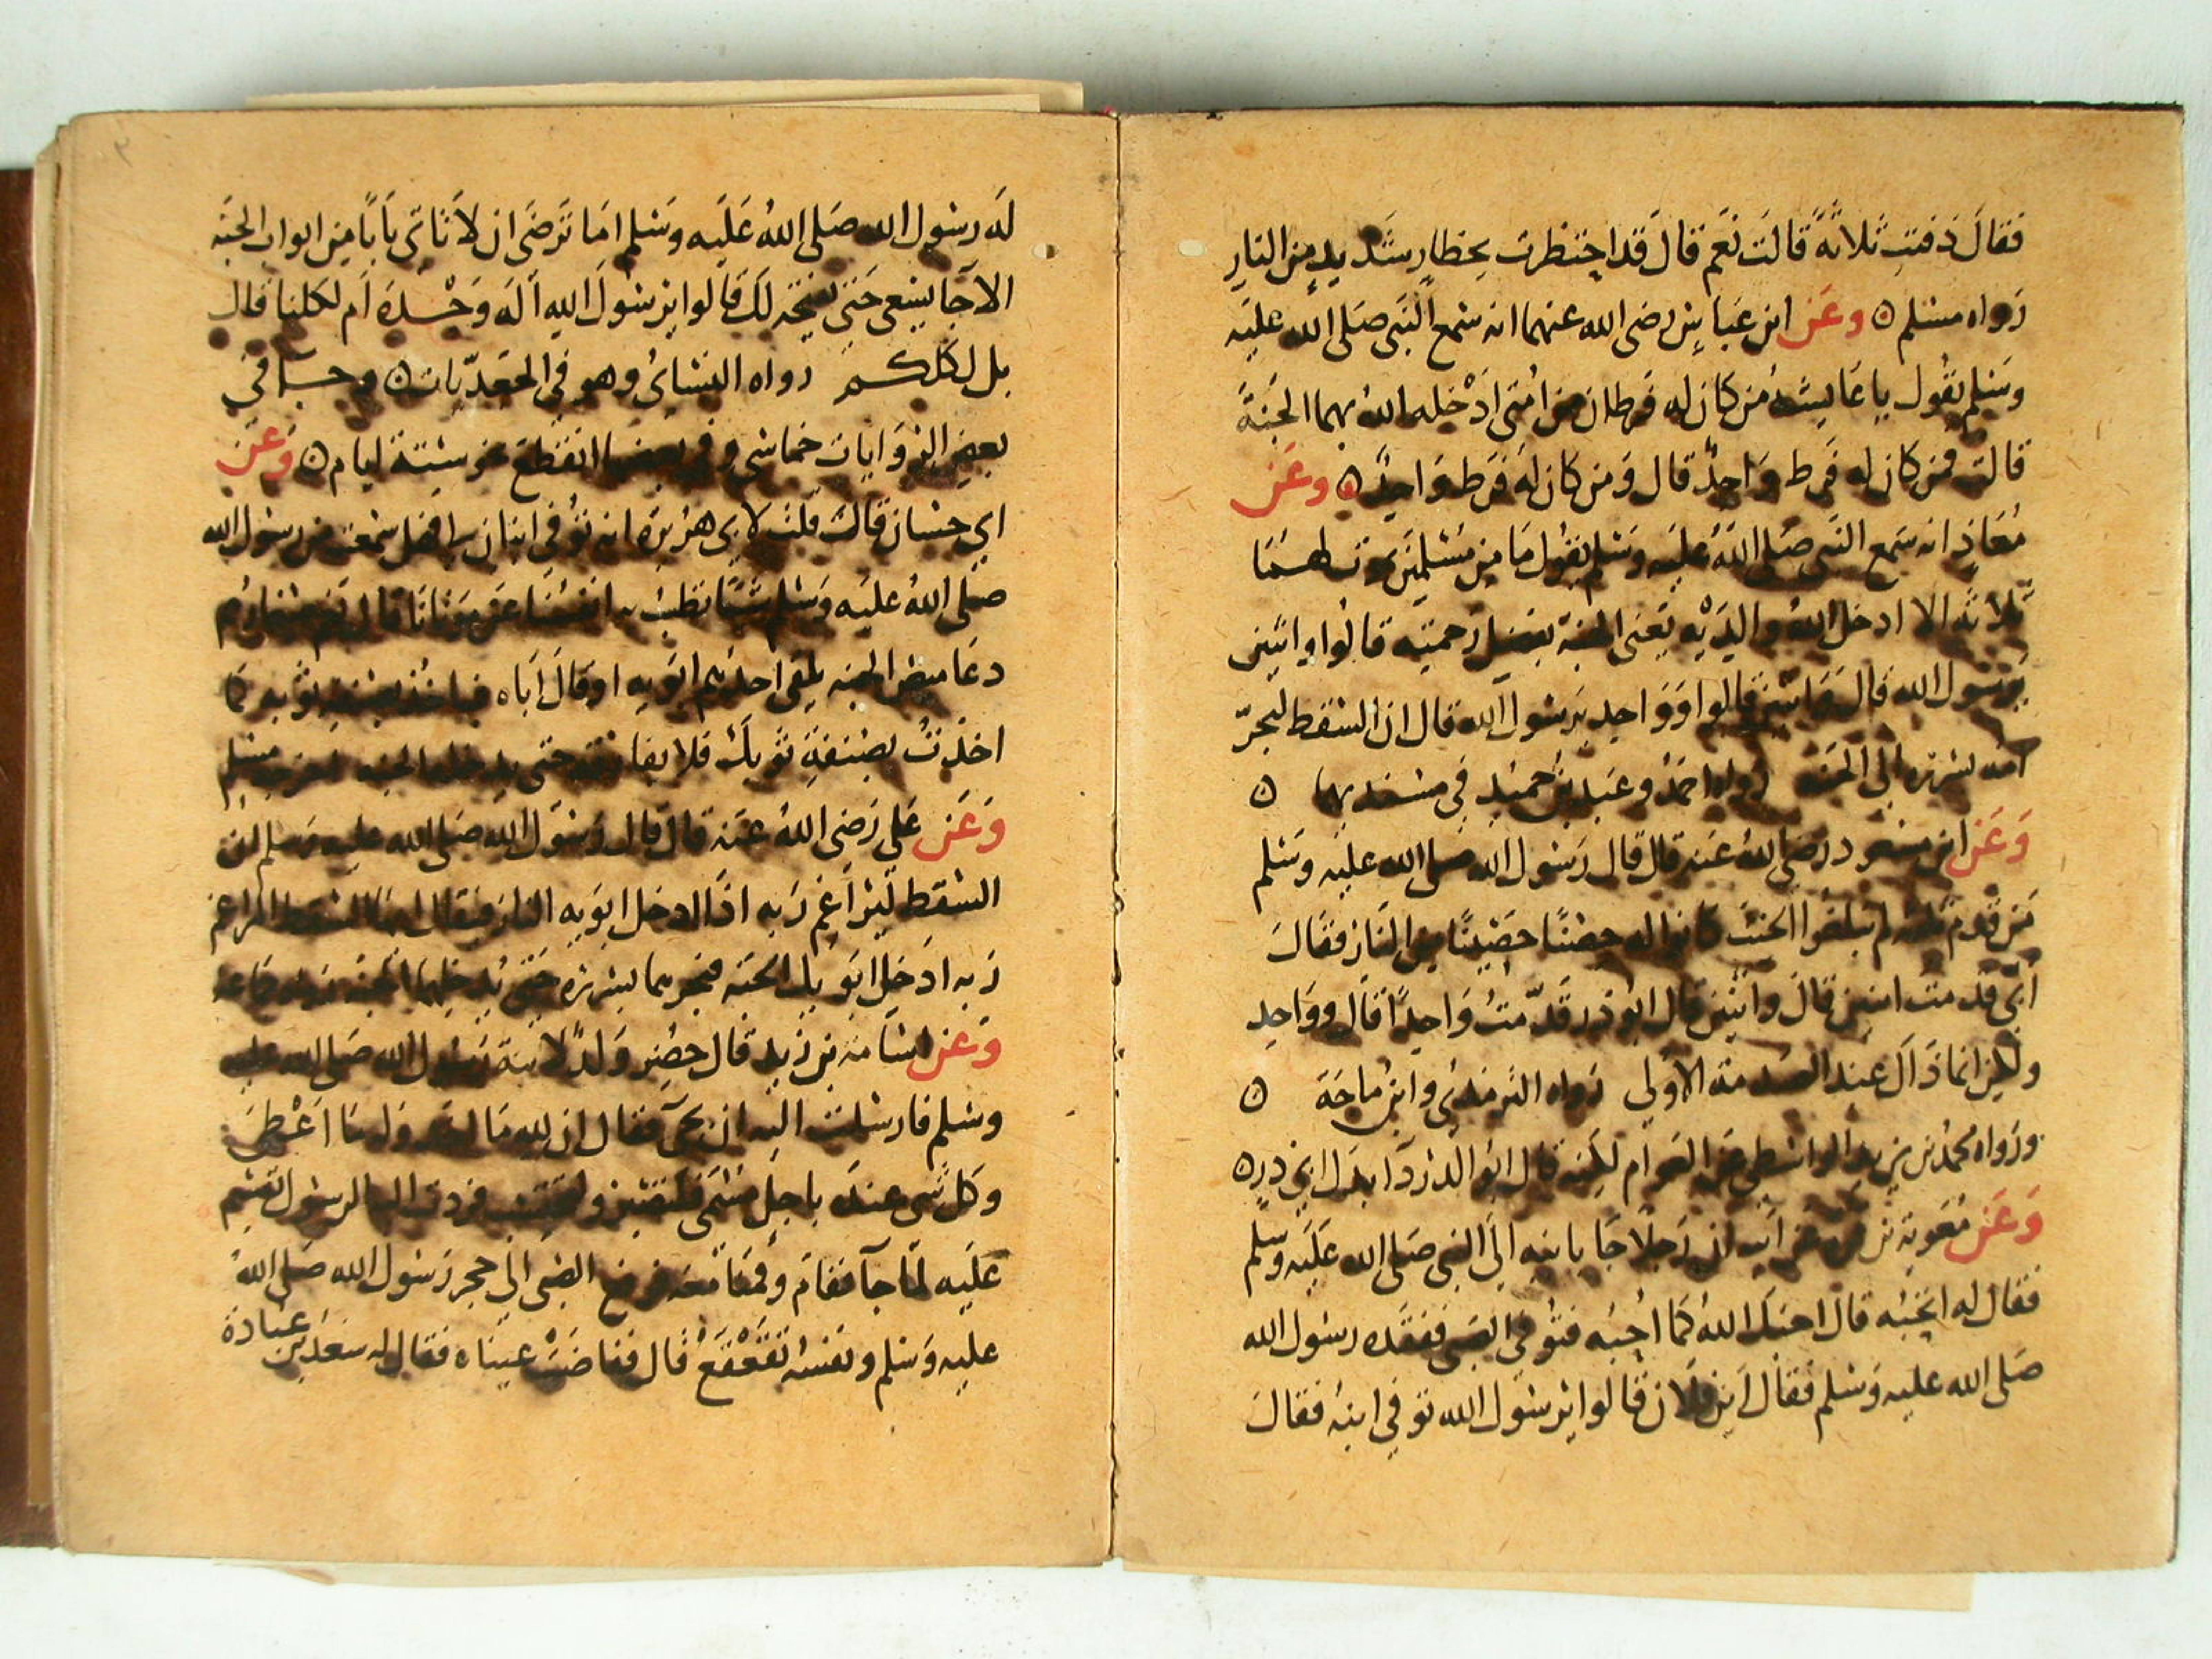 فقالَ دَفنتِ ثَلاثةً قالت نَعَم قال قَد احتظرت بحظارٍ شَديدٍ مِنَ النارِ
رَواه مسلم ۝ وعَن ابن عَباسٍ رضى الله عنهما انه سمع النَّبى صَلى الله عليَه
وسَلم يقُول يا عَايشة مَن كان له فَرطان من امَّتى ادْخله اللهُ بهما الجنَةَ
قالت فمن كان له فَرط وَاحدٌ قال وَمن كان لهَ فَرَط وَاحِدٌ ۝ وعَن
مُعَاذٍ انه سَمع النَّبى صَلى اللهَ عليَه وسَلم يقوُل مَا مِن مُسْلمَين يتوفى لهمَا
ثَلاثَة الا ادخل اللهُ والدَيْه يَعنى الجنة بفضل رَحمتِه قالوُا واثنَين
يَرسُول الله قالَ وَاثنَين قالوا وَوَاحد يَرسُولَ الله قال ان السَّقط ليَجرّ
امه بسَرَرَه الَى الجنَة رَواه احمَدُ وعَبد بنُ حميدٍ في مسنديهما ۝
وَعَن ابن مسعود رَضى اللهُ عَنه قال قال رَسُول الله صلى الله عليَه وسَلم
مَن قَدم ثَلثَه لم يَبلغوُا الحنثَ كانوا له حِصْنًا حَصِينًا من النَارِ فقَالَ
ابىّ قَدمتُ اثنين قالَ واثنَين قال ابوُ ذر قدّمتُ وَاحدًا قال ووَاحِد
ولكِن انما ذَاكَ عند الصَدمة الاولى رَواه الترمذىُ وابنُ ماجَة ۝
ورَواه محمدُ بن يزيد الواسطى عَن العَوام لكنه قال ابوُ الدَردَآ بدَل ابى ذرٍ ۝
وَعَن مُعَوية بن قره عَن ابَيه ان رَجلًا جَا بابنِه الَى النبى صَلى الله عَليَه وسَلم
فقال له اتحبُه قال احبَك اللهُ كما احُبَه فتُوفى الصَبى ففقَده رسُول الله
صَلى الله عليه وسَلم فقال ايَن فلَان قالوا يَرسُولَ الله توفى ابنُه فقالَ
لهَ رسُول الله صَلى اللهُ عَليَه وسَلم امَا تَرضَى ان لَا تَاتى بَابًا مِن ابواب الجنَه
الا جَآ يسعى حَتى يفتحَه لكَ قالوا يَرسُولَ اللهِ أ لهَ وَحْدَهَ أم لكلنا قال
بل لكلكم رواه النسَائىُ وهو في الحقديّات ۝ وجَآ في
بعض الرِوَايات خماسى وفي بعضها انقَطعَ عن ستة ايام ۝ وَعَن
ابى حسَان قالَ قلتُ لابى هرُيرَة انه توُفى ابنان لى فهل سمعتَ من رسُول الله
صَلى اللهُ عليَه وسَلم شيًا تطيبُ به انفسُنَا عَن مَوتانَا قال نَعم صغارهُم
دعَاميصُ الجنه يلقى احدُهم ابَويه او قالَ أباه فياخذ بصنفة ثوبه كما
اخذتُ بصِنفةِ ثوبكَ فلا يفارقه حتى يدخله الجنه اخرجه مسَلم
وَعَن عَلى رَضى اللهُ عَنه قال قال رَسُول الله صَلى الله عليه وسَلم ان
السَّقط ليُراغِم رَبه اذَا ادخل ابوَيه النار فيقال ايها السقط المراغم
رَبه ادَخل ابوَيك الجنَه فيجرهما بسَرَره حَتى يُدخلهَما الجنه رَواه ماجه
وَعن اسَامَة بن زَيد قال حضُر وَلدٌ لابنة رَسُول الله صَلى الله عليه
وسَلم فارسَلت اليه ان يَجىَ فقال ان لله مَا اخذ وله مَا اعْطى
وَكل شَى عندَه باجلٍ مسَمى فلتصبر ولتحتسب فردت اليه الرسُول تقسم
عَليَه لمّا جآ فقامَ وقمنَا معَه فرفع الصَبى الَى حجر رَسُول الله صَلى اللهُ
عليه وَسَلم ونفسُه تقَعْقَعْ قال ففاضَتْ عيناه فقال له سَعدُ بن عبَادة